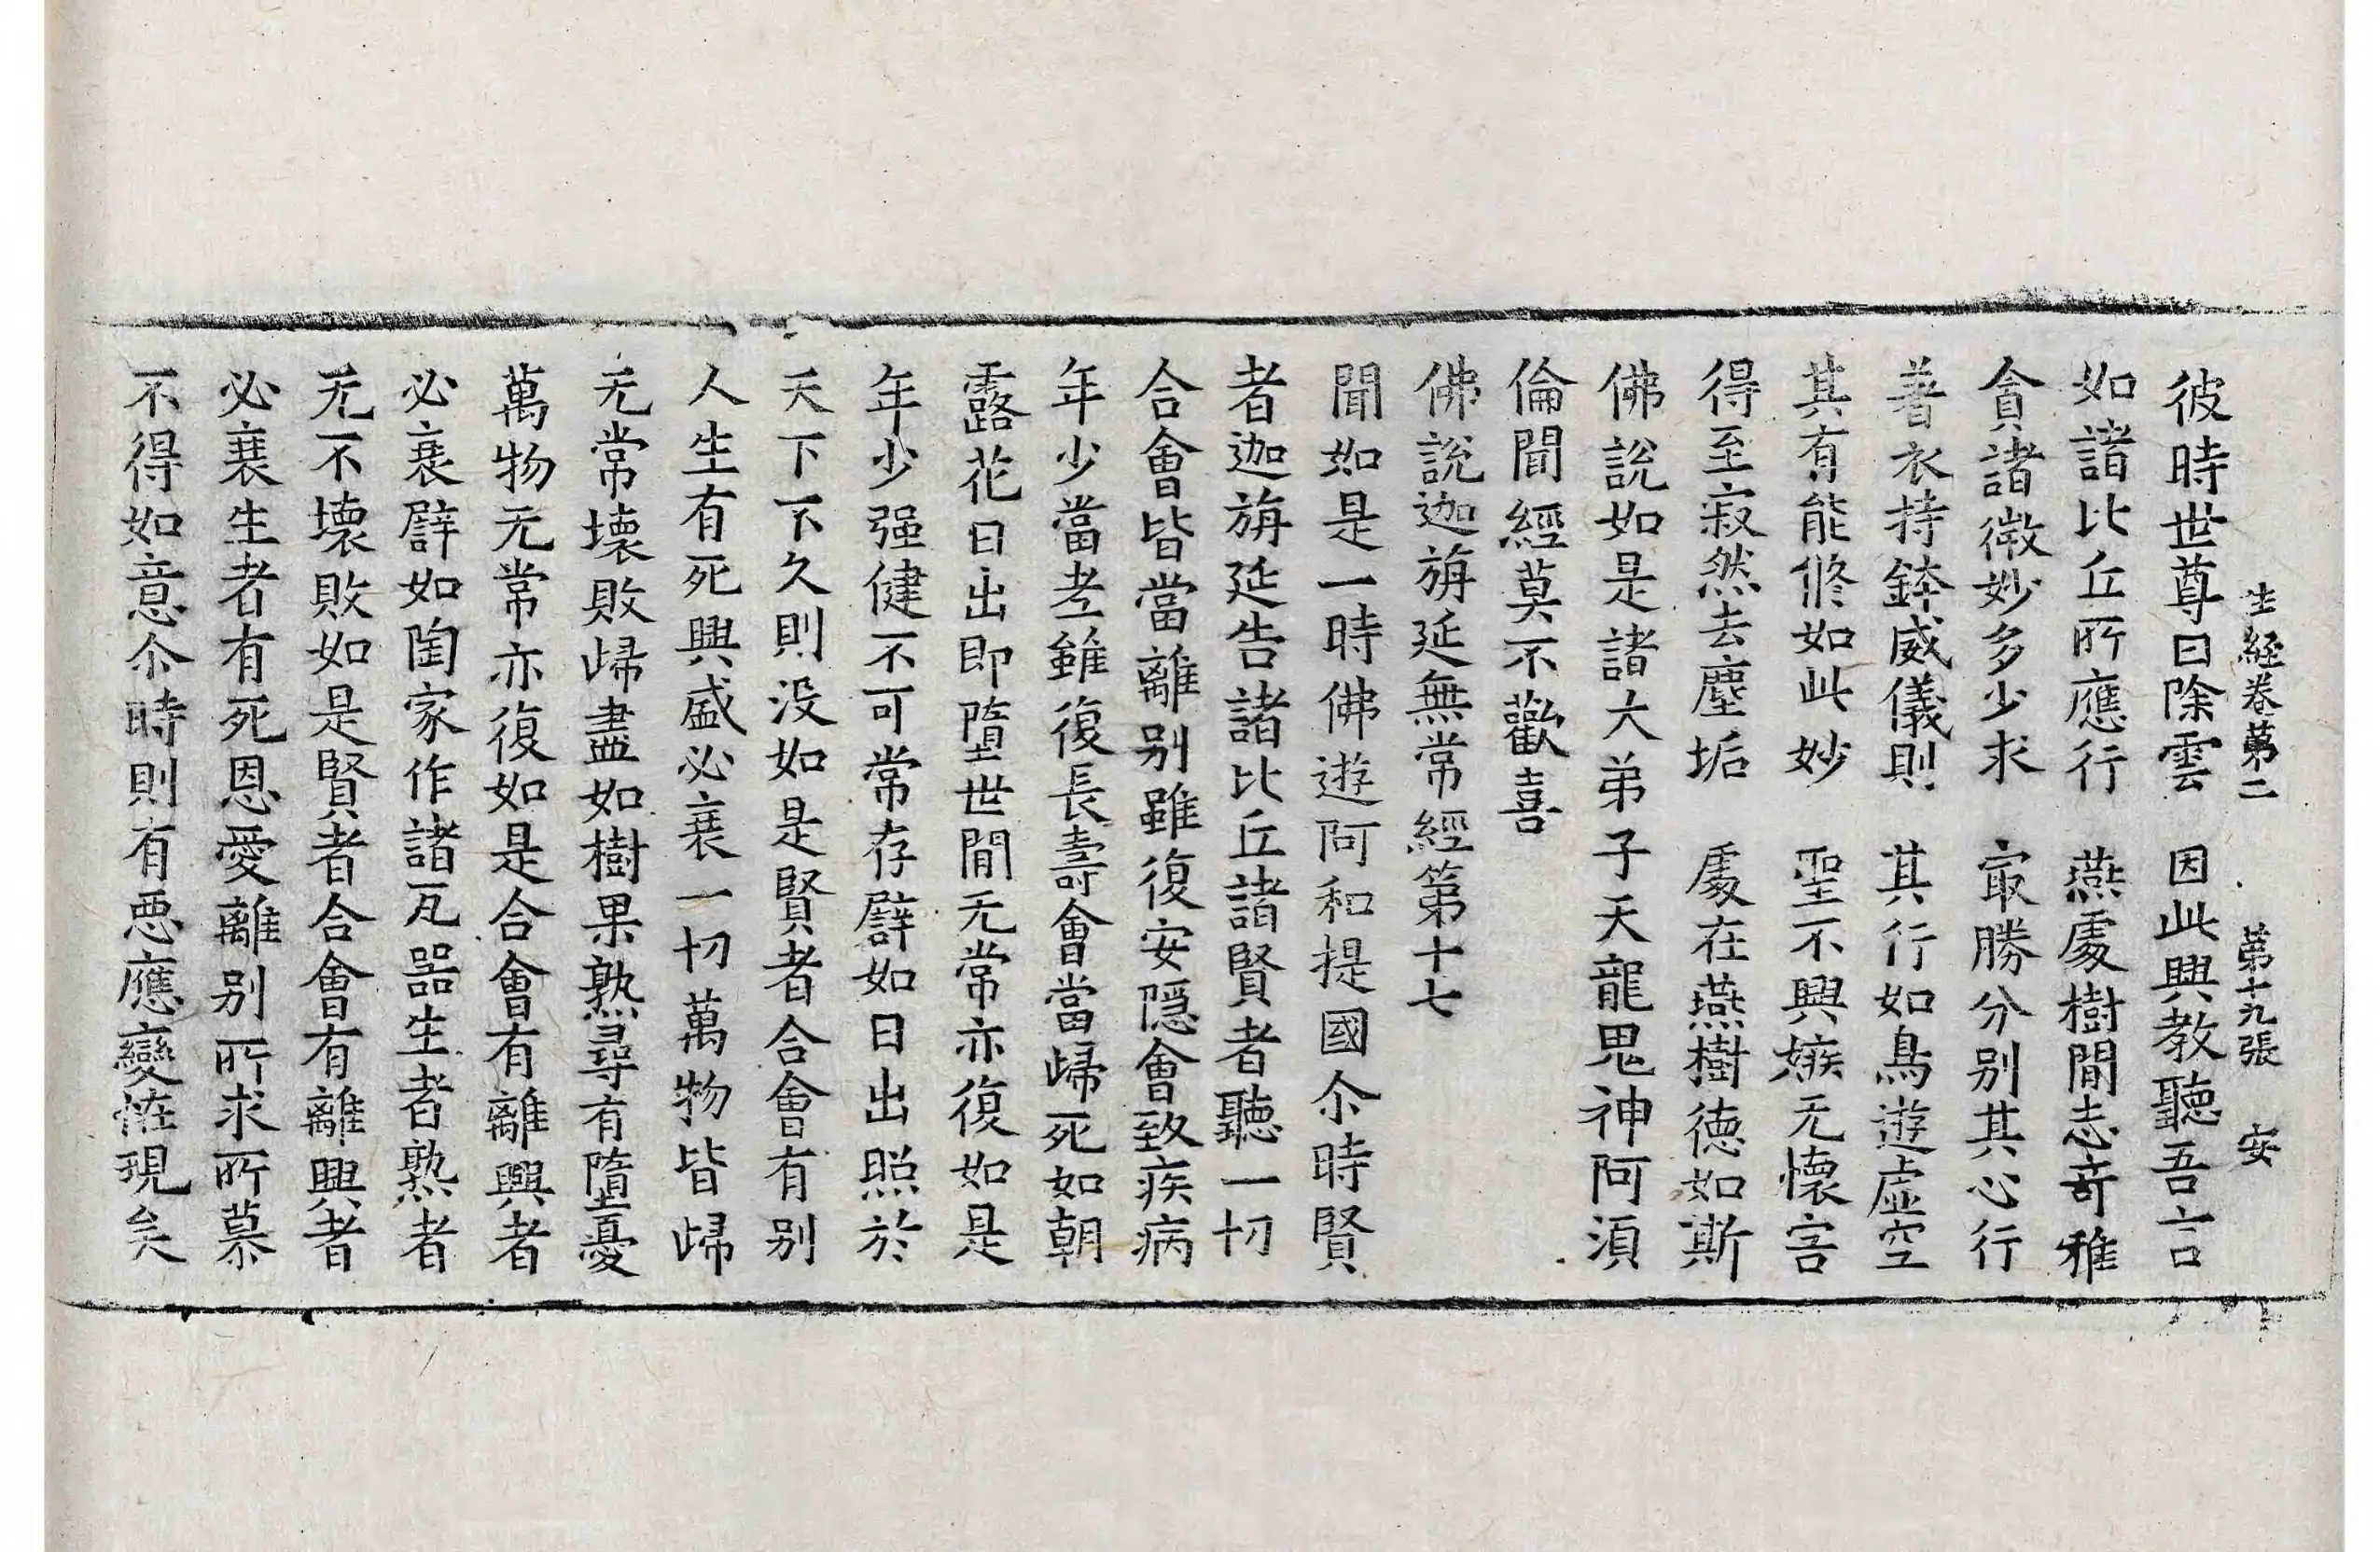 生經卷第二　第十九張　安
彼時世尊曰除雲　因此興教聽吾言
如諸比丘所應行　燕處樹間志奇雅
貪諸微妙多少求　㝡勝分别其心行
著衣持鉢威儀則　其行如鳥遊虛空
其有能修如此妙　聖不興嫉无懷害
得至寂然去塵垢　處在燕樹德如斯
佛說如是諸大弟子天龍鬼神阿須
倫聞經莫不歡喜
佛說迦旃延無常經第十七
聞如是一時佛遊阿和提國尒時賢
者迦旃延告諸比丘諸賢者聽一切
合會皆當離别雖復安隱會致疾病
年少當老雖復長壽會當歸死如朝
露花日出即墮世間无常亦復如是
年少强健不可常存譬如日出照於
天下不久則没如是賢者合會有别
人生有死興盛必衰一切萬物皆歸
无常壞敗歸盡如樹果熟尋有墮憂
萬物无常亦復如是合會有離興者
必衰譬如陶家作諸瓦器生者熟者
无不壞敗如是賢者合會有離興者
必衰生者有死恩愛離别所求所慕
不得如意尒時則有惡應變恠現矣